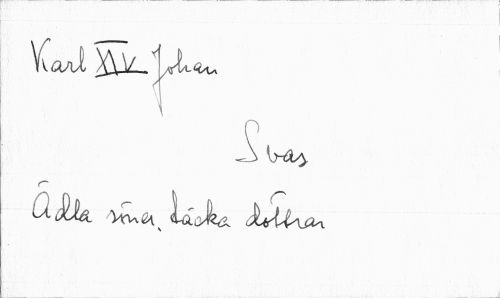 Karl XIV Johan
Svas
Ädla söner, täcka döttrar